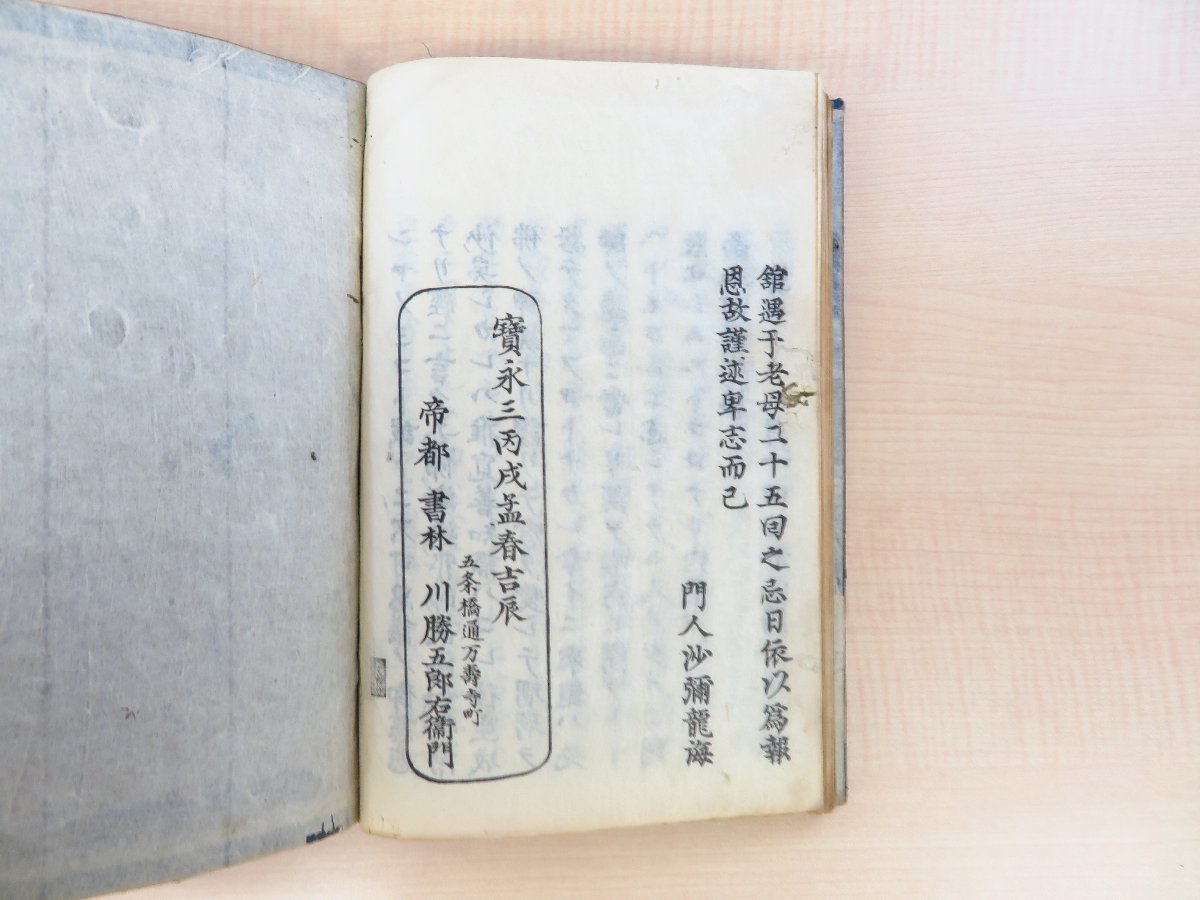 舘遇于老母二十五囘之忌日依以爲報
恩故謹述卑志而已
門人沙彌龍海
寶永三丙戌孟春吉辰
五条橋通万壽寺町
帝都 書林 川勝五郎右衞門